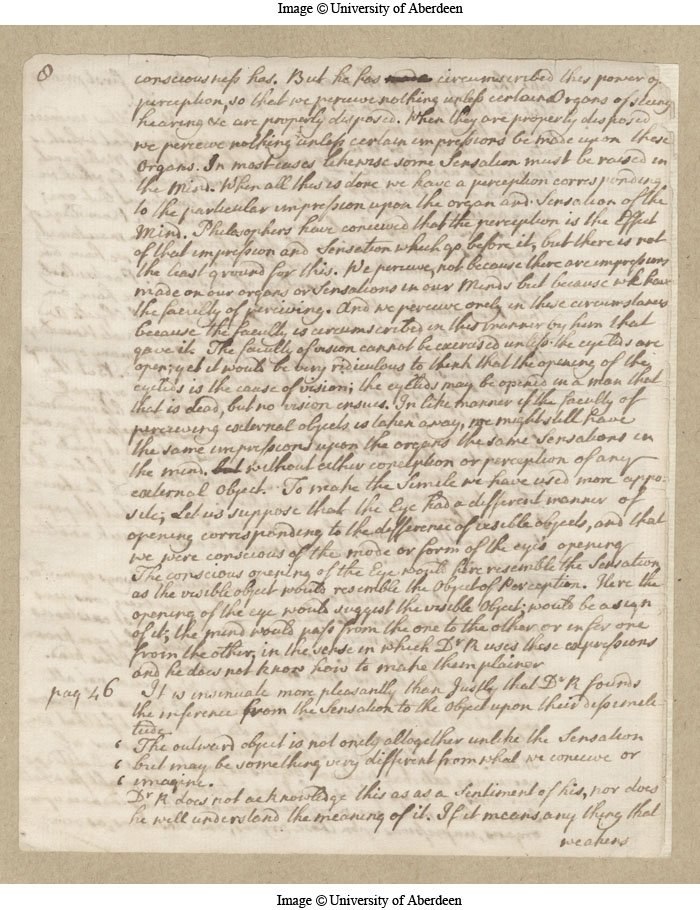 Image © University of Aberdeen
8
consciousness has. But he has made circumscribed this power of
perception, so that we perceive nothing unless certain Organs of seeing
hearing &c are properly disposed. When they are properly disposed
we perceive nothing unless certain impressions be made upon these
Organs. In most cases likewise some Sensation must be raised in
the Mind. When all this is done we have a perception corresponding
to the particular impression upon the organ and Sensation of the
Mind. Philosophers have conceived that the perception is the Effect
of that impression and Sensation which go before it, but there is not
the least ground for this. We perceive, not because there are impressions
made on our organs or Sensations in our Minds but because we have
the faculty of perceiving. And we perceive onely in these circumstances
because the faculty is circumscribed in this manner by him that
gave it. The faculty of vision cannot be exercised unless the eyelids are
open; yet it would be very ridiculous to think that the opening of the
eyelids is the cause of vision; the eyelids may be opened in a man that
that is dead, but no vision ensues. In like manner if the faculty of
perceiving external objects is taken away, we might still have
the same impressions upon the organs the same Sensations in
the mind. but without either conception or perception of any
external Object. To make the Simile we have used more appo:
site; Let us suppose that the Eye had a different manner of
opening corresponding to the difference of visible objects, and that
we were conscious of the mode or form of the eye's opening
The conscious opening of the Eye would here resemble the Sensation,
as the visible object would resemble the Object of Perception. Here the
opening of the eye would suggest the visible Object; would be a sign
of it; the mind would pass from the one to the other or infer one
from the other, in the sense in which Dr R uses these expressions
and he does not know how to make them plainer
pag 46 It is insinuate more pleasantly than Justly that Dr R founds
the inference from the Sensation to the Object upon their dissimile-
tude
‘ The outward object is not onely altogether unlike the Sensation
‘ but may be something very different from what we conceive or
‘ imagine.
Dr R does not acknowledge this as a Sentiment of his, nor does
he will understand the meaning of it. If it means any thing that
weakens
Image © University of Aberdeen